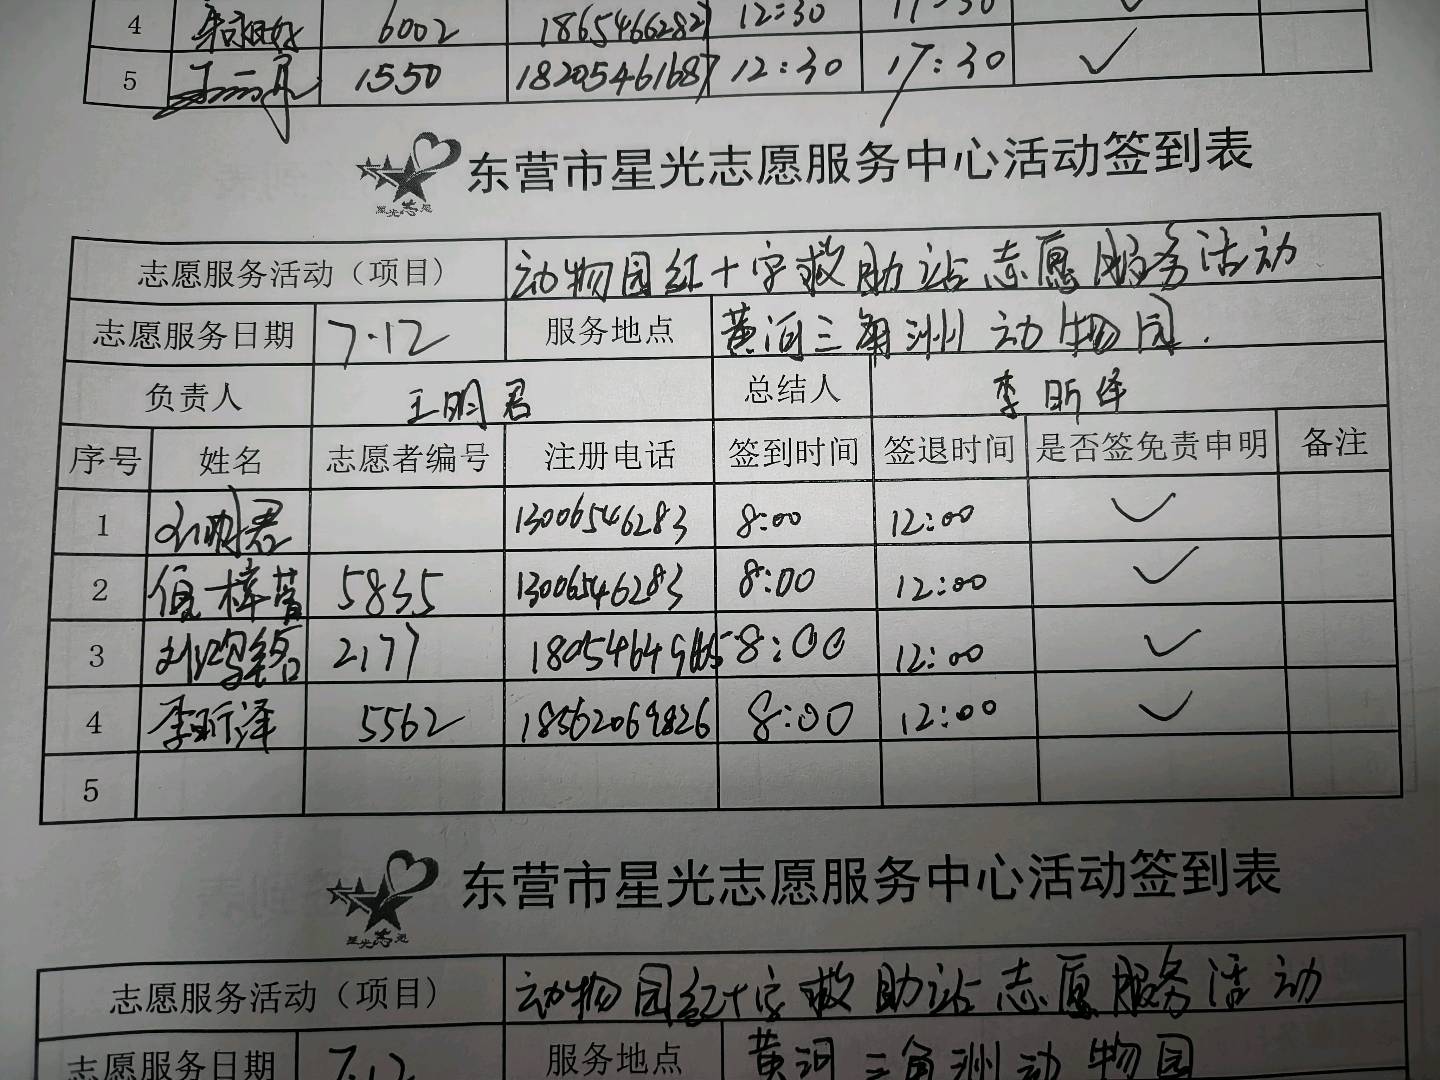 4 6002 18654662827 12:30 17:30 ✓
5 1550 18205461687 12:30 17:30 ✓
星光志愿
东营市星光志愿服务中心活动签到表
志愿服务活动（项目） 动物园红十字救助站志愿服务活动
志愿服务日期 7.12 服务地点 黄河三角洲动物园.
负责人 王明君 总结人 李昕泽
序号 姓名 志愿者编号 注册电话 签到时间 签退时间 是否签免责申明 备注
1 13006546283 8:00 12:00 ✓
2 5835 13006546283 8:00 12:00 ✓
3 2177 8:00 12:00 ✓
4 李昕泽 5562 18562069826 8:00 12:00 ✓
5
星光志愿
东营市星光志愿服务中心活动签到表
志愿服务活动（项目） 动物园红十字救助站志愿服务活动
志愿服务日期 7.12 服务地点 黄河三角洲动物园